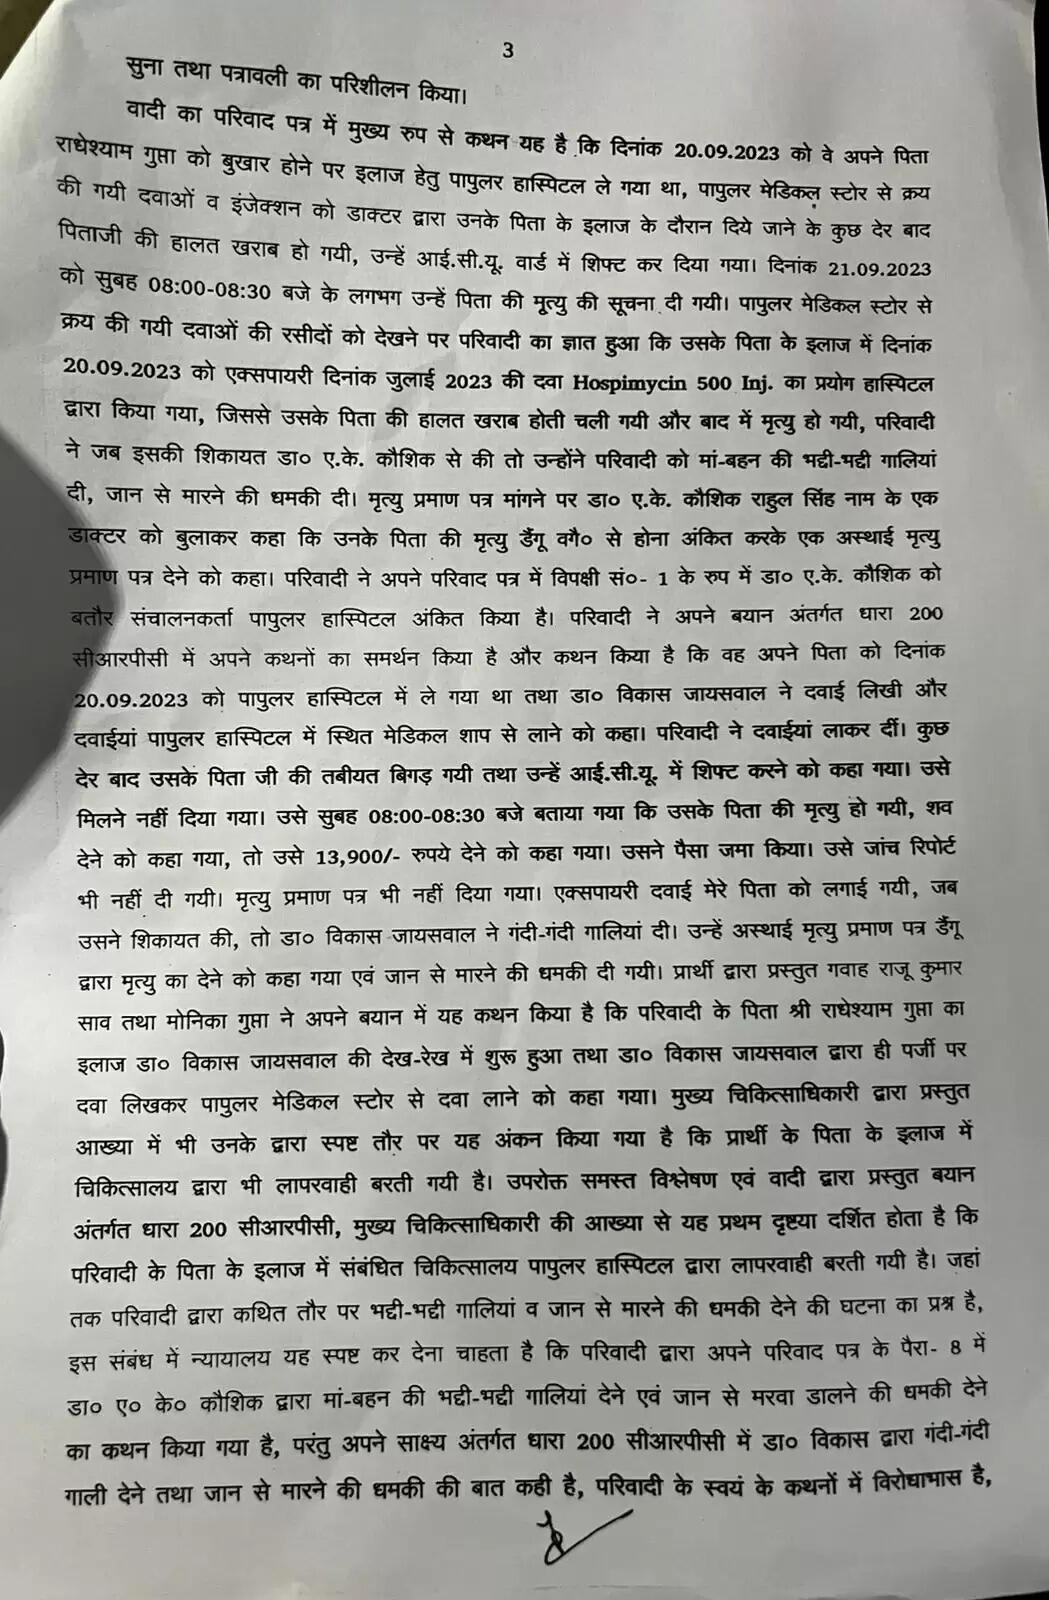 3
सुना तथा पत्रावली का परिशीलन किया।
वादी का परिवाद पत्र में मुख्य रुप से कथन यह है कि दिनांक 20.09.2023 को वे अपने पिता
राधेश्याम गुप्ता को बुखार होने पर इलाज हेतु पापुलर हास्पिटल ले गया था, पापुलर मेडिकल स्टोर से क्रय
की गयी दवाओं व इंजेक्शन को डाक्टर द्वारा उनके पिता के इलाज के दौरान दिये जाने के कुछ देर बाद
पिताजी की हालत खराब हो गयी, उन्हें आई.सी.यू. वार्ड में शिफ्ट कर दिया गया। दिनांक 21.09.2023
को सुबह 08:00-08:30 बजे के लगभग उन्हें पिता की मृत्यु की सूचना दी गयी। पापुलर मेडिकल स्टोर से
क्रय की गयी दवाओं की रसीदों को देखने पर परिवादी का ज्ञात हुआ कि उसके पिता के इलाज में दिनांक
20.09.2023 को एक्सपायरी दिनांक जुलाई 2023 की दवा Hospimycin 500 Inj. का प्रयोग हास्पिटल
द्वारा किया गया, जिससे उसके पिता की हालत खराब होती चली गयी और बाद में मृत्यु हो गयी, परिवादी
ने जब इसकी शिकायत डा० ए.के. कौशिक से की तो उन्होंने परिवादी को मां-बहन की भद्दी-भद्दी गालियां
दी, जान से मारने की धमकी दी। मृत्यु प्रमाण पत्र मांगने पर डा० ए.के. कौशिक राहुल सिंह नाम के एक
डाक्टर को बुलाकर कहा कि उनके पिता की मृत्यु डैंगू वगै० से होना अंकित करके एक अस्थाई मृत्यु
प्रमाण पत्र देने को कहा। परिवादी ने अपने परिवाद पत्र में विपक्षी सं०- 1 के रुप में डा० ए.के. कौशिक को
बतौर संचालनकर्ता पापुलर हास्पिटल अंकित किया है। परिवादी ने अपने बयान अंतर्गत धारा 200
सीआरपीसी में अपने कथनों का समर्थन किया है और कथन किया है कि वह अपने पिता को दिनांक
20.09.2023 को पापुलर हास्पिटल में ले गया था तथा डा० विकास जायसवाल ने दवाई लिखी और
दवाईयां पापुलर हास्पिटल में स्थित मेडिकल शाप से लाने को कहा। परिवादी ने दवाईयां लाकर दीं। कुछ
देर बाद उसके पिता जी की तबीयत बिगड़ गयी तथा उन्हें आई.सी.यू. में शिफ्ट करने को कहा गया। उसे
मिलने नहीं दिया गया। उसे सुबह 08:00-08:30 बजे बताया गया कि उसके पिता की मृत्यु हो गयी, शव
देने को कहा गया, तो उसे 13,900/- रुपये देने को कहा गया। उसने पैसा जमा किया। उसे जांच रिपोर्ट
भी नहीं दी गयी। मृत्यु प्रमाण पत्र भी नहीं दिया गया। एक्सपायरी दवाई मेरे पिता को लगाई गयी, जब
उसने शिकायत की, तो डा० विकास जायसवाल ने गंदी-गंदी गालियां दी। उन्हें अस्थाई मृत्यु प्रमाण पत्र डैंगू
द्वारा मृत्यु का देने को कहा गया एवं जान से मारने की धमकी दी गयी। प्रार्थी द्वारा प्रस्तुत गवाह राजू कुमार
साव तथा मोनिका गुप्ता ने अपने बयान में यह कथन किया है कि परिवादी के पिता श्री राधेश्याम गुप्ता का
इलाज डा० विकास जायसवाल की देख-रेख में शुरू हुआ तथा डा० विकास जायसवाल द्वारा ही पर्जी पर
दवा लिखकर पापुलर मेडिकल स्टोर से दवा लाने को कहा गया। मुख्य चिकित्साधिकारी द्वारा प्रस्तुत
आख्या में भी उनके द्वारा स्पष्ट तौर पर यह अंकन किया गया है कि प्रार्थी के पिता के इलाज में
चिकित्सालय द्वारा भी लापरवाही बरती गयी है। उपरोक्त समस्त विश्लेषण एवं वादी द्वारा प्रस्तुत बयान
अंतर्गत धारा 200 सीआरपीसी, मुख्य चिकित्साधिकारी की आख्या से यह प्रथम दृष्टया दर्शित होता है कि
परिवादी के पिता के इलाज में संबंधित चिकित्सालय पापुलर हास्पिटल द्वारा लापरवाही बरती गयी है। जहां
तक परिवादी द्वारा कथित तौर पर भद्दी-भद्दी गालियां व जान से मारने की धमकी देने की घटना का प्रश्न है,
इस संबंध में न्यायालय यह स्पष्ट कर देना चाहता है कि परिवादी द्वारा अपने परिवाद पत्र के पैरा- 8 में
डा० ए० के० कौशिक द्वारा मां-बहन की भद्दी-भद्दी गालियां देने एवं जान से मरवा डालने की धमकी देने
का कथन किया गया है, परंतु अपने साक्ष्य अंतर्गत धारा 200 सीआरपीसी में डा० विकास द्वारा गंदी-गंदी
गाली देने तथा जान से मारने की धमकी की बात कही है, परिवादी के स्वयं के कथनों में विरोधाभास है,